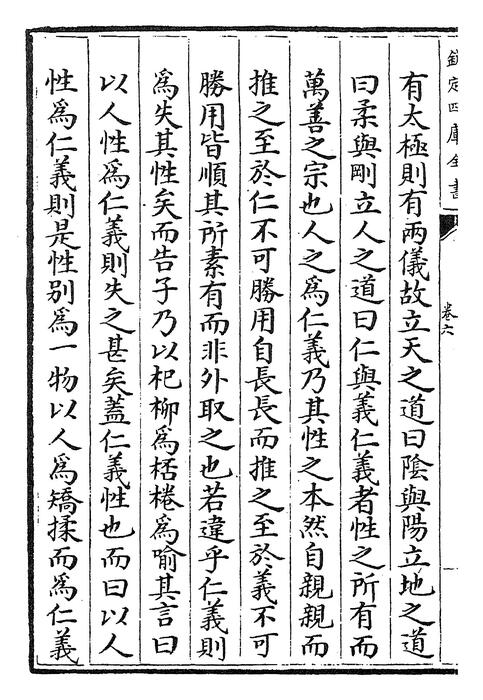 欽定四庫全書
卷六
有太極則有兩儀故立天之道曰陰與陽立地之道
曰柔與剛立人之道曰仁與義仁義者性之所有而
萬善之宗也人之為仁義乃其性之本然自親親而
推之至於仁不可勝用自長長而推之至於義不可
勝用皆順其所素有而非外取之也若違乎仁義則
為失其性矣而告子乃以杞柳為桮棬為喻其言曰
以人性為仁義則失之甚矣蓋仁義性也而曰以人
性為仁義則是性别為一物以人為矯揉而為仁義